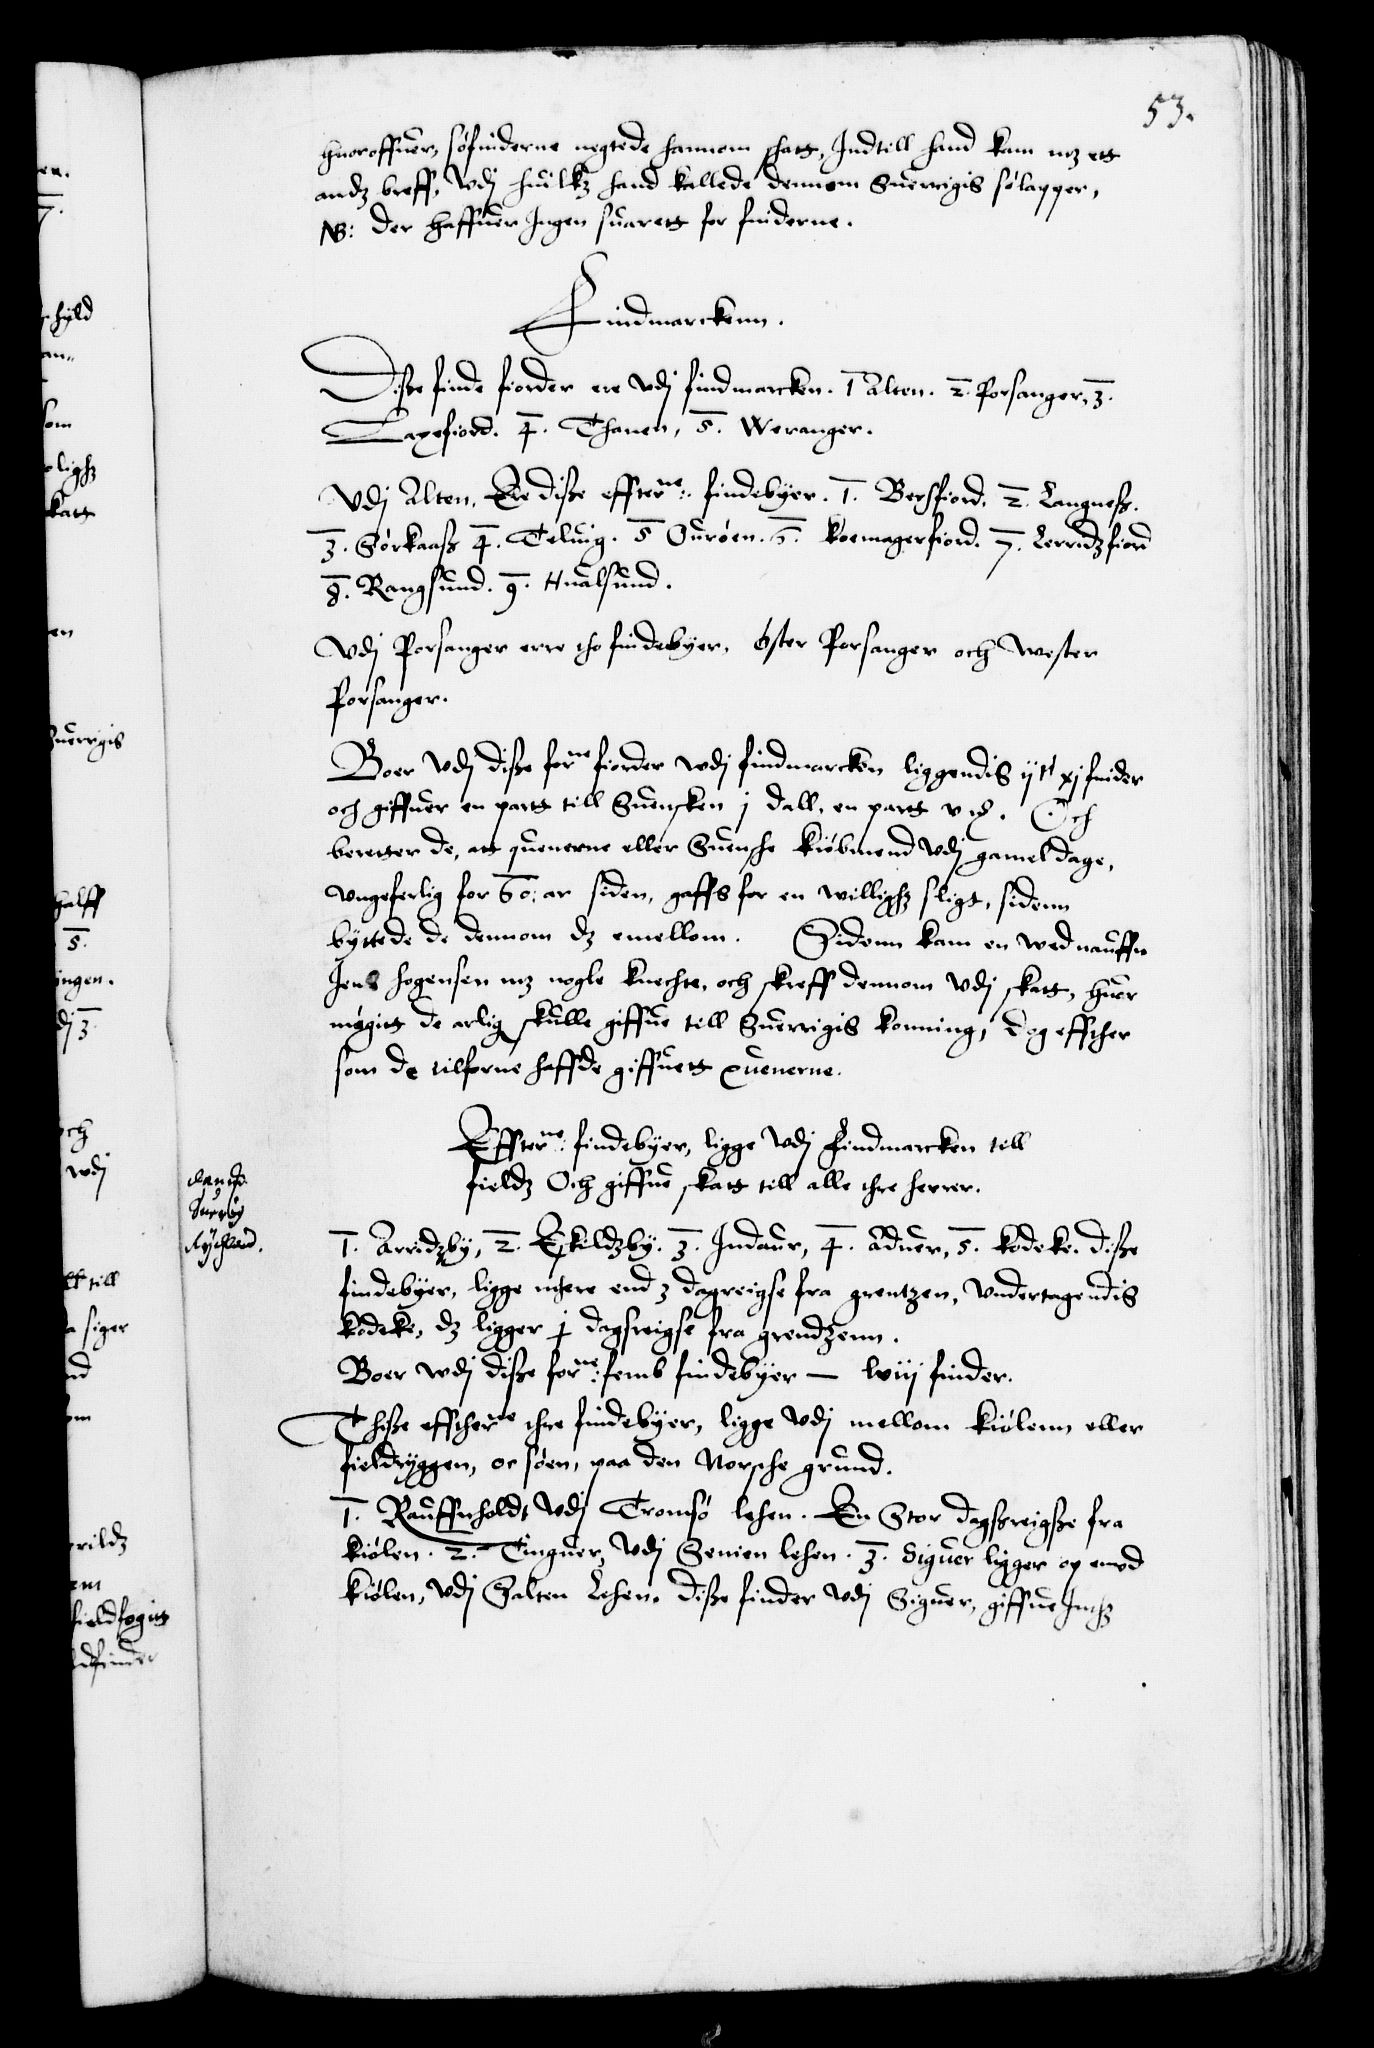 53.
huoroffuer, søfinderne negtede hannom schatt, Indtill hand kam mz ett
andz breff, Vdj huilkz hand kallede dennom Suerrigis sølapper,
NB: der haffuer Ingen suarett for finderne.
Findmarckenn.
Disse finde fiorder ere Vdj findmarcken. 1 Alten. 2. Porsanger, 3.
Laxefiord. 4. Thanen, 5. Weranger.
Vdj Alten, Ere disse effterne: findebyer. 1. Bersfiord. 2. Langness.
3. Sørkaass 4. Teluig. 5 Ourøen. 6. Koemagerfiord. 7. Lerridzfiord
8. Rangsund. 9. Hualsund.
Vdj Porsanger erre tho findebyer, Øster Porsanger och Wester
Porsanger.
Boer Vdj disse forne fiorder wdj findmarcken liggendis ijc xj finder
och giffuer en partt till Suensken j dall. en partt v ort. Och
beretter de, att quenerne eller Suensche kiøbmend Vdj gamel dage,
Vngeferlig for 60: ar siden, gaffs for en willighz sligt, sidenn
byttede de dennom dz emellom. Sidenn kam en wed nauffn
Jens Hogensen mz nogle knechte, och skreff dennom Vdj skatt, huor
møgitt de arlig skulle giffue till Suerrigis konning, dog effther
som de tilforne haffde giffuett quenerne.
Effterne: findebyer, ligge Vdj Findmarcken till
fieldz Och giffue skatt till alle thre herrer.
Suerrig
Rydtzland.
1. Arridzby, 2. Eskildzby. 3. Indaur, 4. Aduer, 5. Kodeke. disse
findebyer, ligge mhere end 3 dagreigse fra grentzen, Vndertagendis
Kodeke, dz ligger j dagsreigse fra grendzenn.
Boer wdj disse forne: femb findebyer — lviij finder.
Thisse efftherne thre findebyer, ligge Vdj mellom Kiølenn eller
fieldryggen, oc søen, paa den Norsche grund.
1. Rauffnholdt Vdj Tromsø lehen. En Stor dagssreigsse fra
kiølen. 2. Tinguer, Vdj Senien lehen. 3. Siguer ligger op emod
kiølen, Vdj Salten Lehen. disse finder Vdj Siguer, giffue Inthz